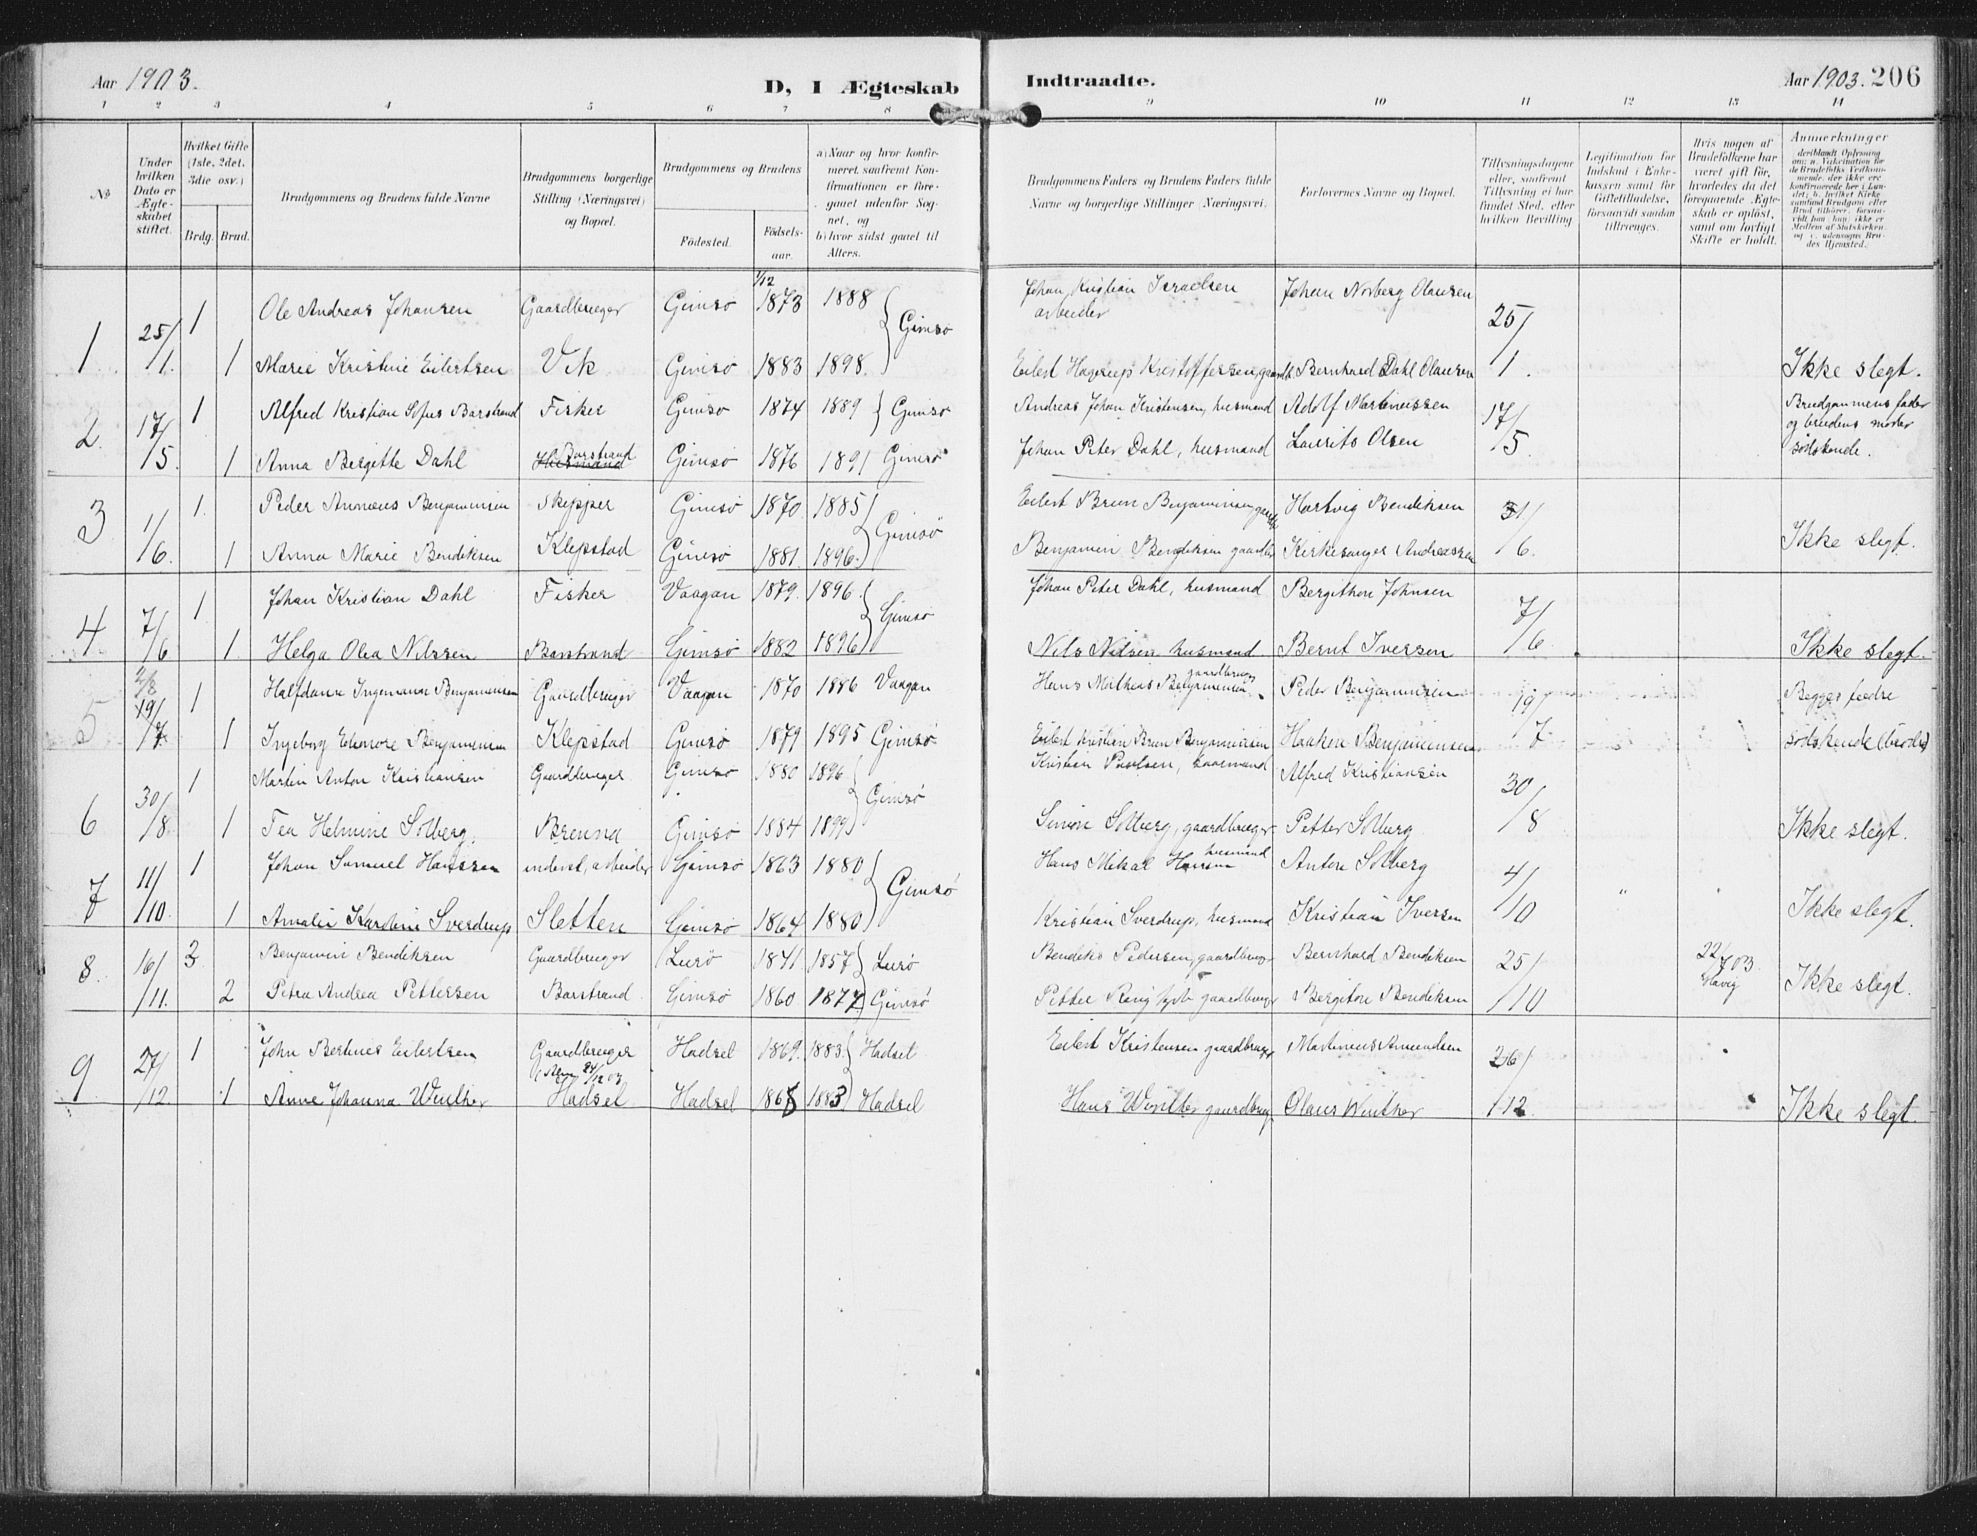 Aar 1903.
D, I Ægteskab Indtraadte.
Aar 1903. 206
1 2 3 4 5 6 7 8 9 10 11 12 13 14
No
Under hvilken Dato er Ægteskabet stiftet.
Hvilket Gifte (1ste, 2det, 3die osv.)
Brdg. Brud.
Brudgommens og Brudens fulde Navne
Brudgommens borgerlige Stilling (Næringsvei) og Bopæl.
Brudgommens og Brudens
Födested. Födselsaar.
a) Naar og hvor konfirmeret, saafremt Konfirmationen er foregaaet udenfor Sognet, og
b) hvor sidst gaaet til Alters.
Brudgommens Faders og Brudens Faders fulde Navne og borgerlige Stillinger (Næringsvei).
Forlovernes Navne og Bopæl.
Tillysningsdagene eller, saafremt Tillysning ei har fundet Sted, efter hvilken Bevilling
Legitimation for Indskud i Enkekassen samt for Giftetilladelse, forsaavidt saadan tiltrænges.
Hvis nogen af Brudefolkene har været gift før, hvorledes da det foregaaende Ægteskab er opløst, samt om lovligt Skifte er holdt.
Anmerkninger
1 25/1. 1 Ole Andreas Johansen Gaardbruger Gimsø 1/12 1873 1888 Gimsø Johan Kristian Israelsen arbeider Johan Norberg Olausen 25/1.
1 Marie Kristine Eilertsen Vik Gimsø 1883 1898. Eilert Hagerups Kristoffersen, gaardb. Bernhard Dahl Olausen Ikke slegt.
2. 17/5. 1 Alfred Kristian Sofus Barstrand Fisker Gimsø 1874 1889 Gimsø Andreas Johan Kristensen, husmand Adolf Martinussen 17/5. Brudgommens fader og brudens moder södskende.
1 Anna Bergitte Dahl Husmand Barstrand Gimsø 1876 1891 Gimsø Johan Peter Dahl, husmand Laurits Olsen
3 1/6. 1. Peder Annæus Benjaminsen Skipper Gimsø 1870 1885 Gimsø Eilert Brun Benjaminsen gaardb. Hartvig Bendiksen 31/6.
1 Anna Marie Bendiksen Klepstad Gimsø 1881. 1896. Benjamin Bendiksen gaardb. Kirkesanger Andreassen Ikke slegt.
4 7/6 1 Johan Kristian Dahl Fisker Vaagan 1879. 1896. Gimsø Johan Peter Dahl, husmand Bergithon Johnsen 7/6
1. Helga Olea Nilssen Barstrand Gimsø 1882 1896 Nils Nilsen husmand. Bernt Iversen Ikke slegt.
5 2/8 19/7. 1 Halfdann Ingemann Benjaminsen Gaardbruger Vaagan 1870 1886 Vaagan Hans Mathæus Benjaminsen gaardbruger Peder Benjaminsen 19/7 Begges fædre södskende (brødre)
1 Ingeborg Elenore Benjaminsen Klepstad Gimsø 1879 1895 Gimsø Eilert Kristian Brun Benjaminsen Haakon Benjaminsen
6 30/8. 1 Martin Anton Kristiansen Gaardbruger Gimsø 1880 1896 Gimsø Kristian Paulsen, husmand Alfred Kristiansen 30/8
1 Tea Helmine Solberg. Brenna Gimsø 1884 1899 Simon Solberg, gaardbruger Petter Solberg Ikke slegt.
7 11/10. 1 Johan Samuel Hanssen inderst, arbeider Gimsø 1863 1880 Gimsø Hans Mikal Hansen husmand Anton Solberg 4/10 "
1 Amalie Karoline Sverdrup Sletten Gimsø 1864 1880 Kristian Sverdrup, husmand Kristian Iversen Ikke slegt.
8 16/11. 3. Benjamin Bendiksen Gaardbruger Lurø 1841 1857 Lurø Bendiks Pedersen, gaardbrug. Bernhard Bendiksen 25/10 22/7 03.
2 Petra Andrea Pettersen Barstrand Gimsø 1860 1877. Gimsø Petter gaardbruger Bergiton Bendiksen Ikke slegt.
9 27/12. 1 John Bertines Eilertsen Gaardbruger Hadsel 1869. 1883. Hadsel Eilert Kristensen gaardbruger Martinius Amundsen 26/12
1 Anne Johanna Winther 24/12 03 Hadsel Hadsel 1868 1883 Hadsel Hans Winther gaardbrug. Olaus Winther Ikke slegt.